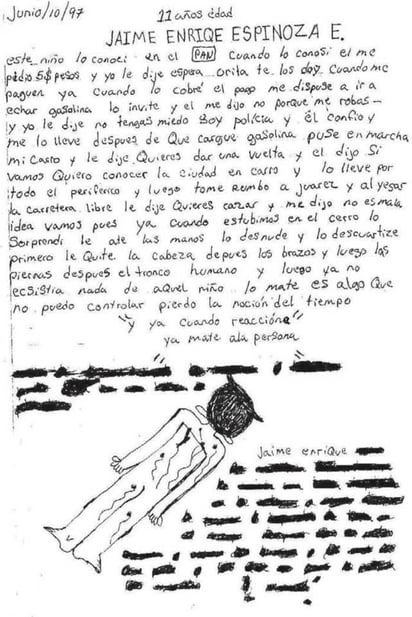 Junio/10/97 11 años edad
JAIME ENRIQE ESPINOZA E.
este niño lo conoci en el PAN cuando lo conosi el me
pidio 5$ pesos y yo le dije espera orita te los doy cuando me
paguen ya cuando lo cobré el pago me dispuse a ir a
echar gasolina lo invite y el me dijo no porque me robas-
y yo le dije no tengas miedo Soy policia y él confio y
me lo lleve despues de Que cargue gasolina puse en marcha
mi carro y le dije Quieres dar una vuelta y el dijo Si
vamos Quiero conocer la ciudad en carro y lo lleve por
todo el periferico y luego tome Rumbo a juarez y al yegar
la carretera libre le dije Quieres cazar y me dijo no es mala
idea vamos pues ya cuando estubimos en el cerro lo
Sorprendi le ate las manos lo desnude y lo descuartize
primero le Quite la cabeza depues los brazos y luego las
piernas despues el tronco humano y luego ya no
ecsistia nada de aquel niño lo mate es algo Que
no puedo controlar pierdo la nocion del tiempo
"y ya cuando reaccióne"
ya mate ala persona
Jaime enrique